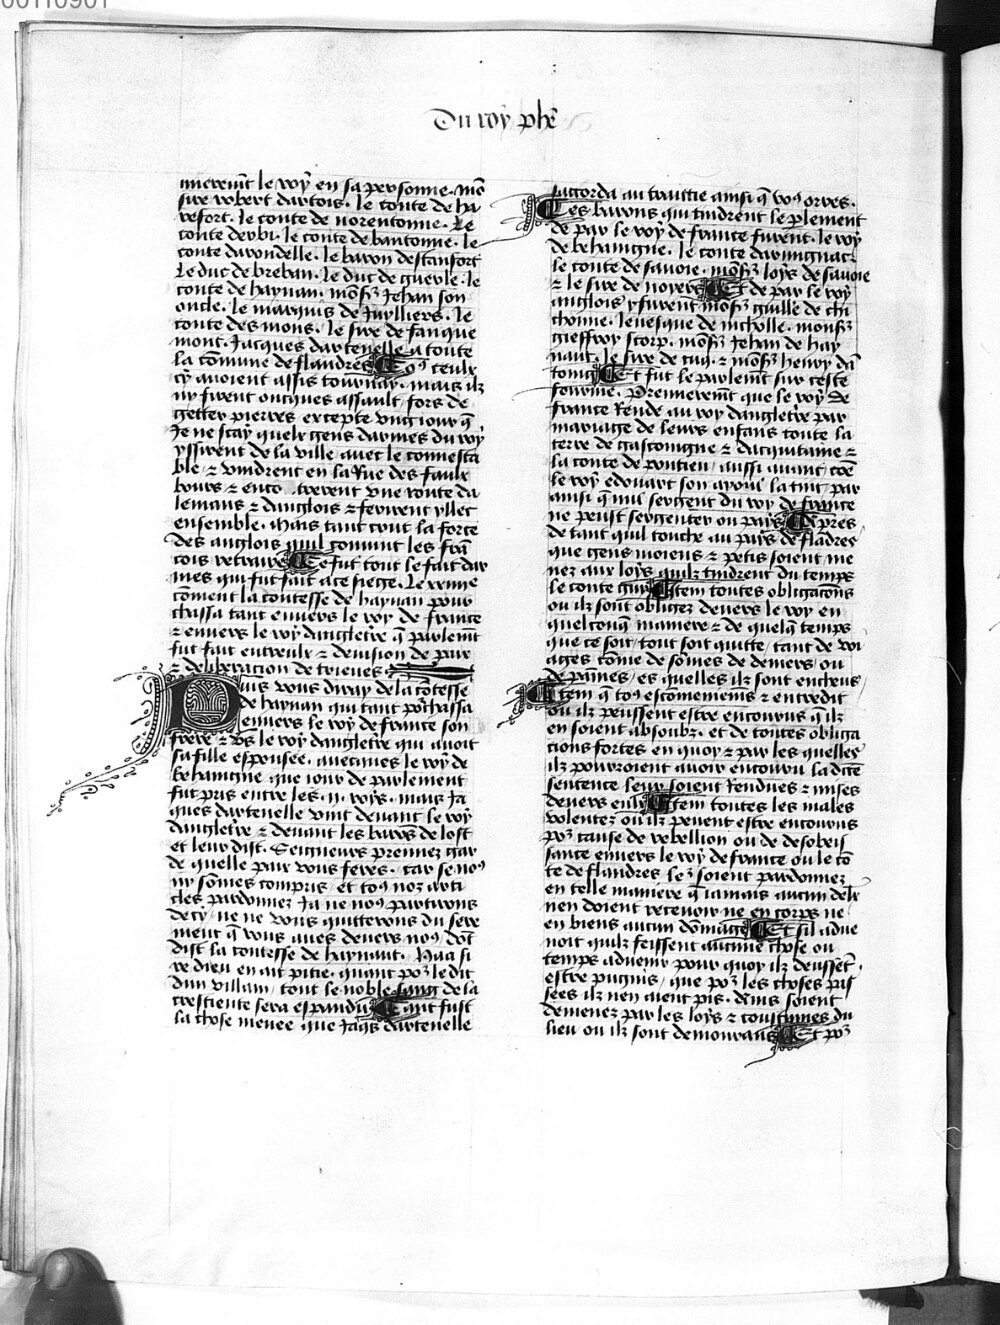 00110901
Du roy phē
mierem̄t le roy en sa personne. mō
sire robert dartois. le conte de ha
refort. le conte de norentonne. Le
conte derbi. le conte de bantonne. le
conte darondelle. le baron destanfort
Le duc de breban. le duc de guerle. le
conte de haynau. mōsꝫ Jehan son
oncle. le marquis de Juylliers. le
conte des mons. le sire de fauque
mont. Jacques dartevelle a toute
la cōmune de flandres Toꝰ ceulx
cy auoient assis tournay. mais ilz
ny firent oncques assault. fors de
getter pierres excepte vng iour q̄
Je ne scay quelx gens darmes du roy
yssirent de la ville auec le connesta
ble ⁊ vindrent en la Rue des faulx
bours ⁊ enco trerent vne route da
lemans ⁊ danglois ⁊ ferirent yllec
ensemble. Mais tant crut la force
des anglois quil conuint les frā
cois retraire Ce fut tout le fait dar
mes qui fut fait a ce siege. Le
cōment la contesse de haynau pour
chassa tant enuers le roy de france
⁊ enuers le roy dangletre q̄ parlem̄t
fut fait entreulx ⁊ deuision de paix
⁊ deliberacion de trieues
Puis vous diray de la cōtesse
de haynau qui tant poꝰchassa
enuers le roy de france son
frere ⁊ vs le roy dangletre qui auoit
sa fille espousee. auecques le roy de
behaingne que iour de parlement
fut pris entre les .ij. roys. mais Ja
ques dartevelle vint deuant le roy
dangletre ⁊ deuant les barōs de lost
et leur dist. Seigneurs prennez gar
de quelle paix vous feres. car se noꝰ
ny sōmes compris et toꝰ noz arti
cles pardonnez Ja ne noꝰ partirons
de cy. ne ne vous quitterons du sere
ment q̄ vous aues deuers noꝰ. dōt
dist la contesse de haynaut. Haa si
re dieu en ait pitie. quant poꝫ le dit
dun villain. tout le noble sang de la
crestiente sera espandu Tant fust
la chose menee que Jaqs dartevelle
saccorda au traittie ainsi q̄ voꝰ orres.
Les barons qui tindrent le plement
de par le roy de france furent. le roy
de behaingne. le conte darmignac.
le conte de sauoie. mōsꝫ loys de sauoie
⁊ le sire de noyers Et de par le roy
anglois y furent mōsꝫ guillē de cli
thonne. leuesque de nicholle. monsꝫ
gieffroy scorp. mōsꝫ Jehan de hay
naut. le sire de cuq. ⁊ mōsꝫ henry dā
toing Et fut le parlem̄t sur ceste
fourme. Premierem̄t que le roy de
france Rende au roy dangletre par
mariage de leurs enfans toute la
terre de gascoingne ⁊ dacquitaine ⁊
la conte de pontieu aussi auant cōe
le roy edouart son ayoul la tint par
ainsi q̄ nul sergent du roy de france
ne peust sergenter ou pays Et apres
de tant quil touche au pays de flādres
que gens moiens ⁊ petis soient me
nez aux loys quilz tindrent du temps
le conte guy Item toutes obligacōns
ou ilz sont obligez deuers le roy en
quelconq̄ maniere ⁊ de quelq̄ temps
que ce soit. tout soit quitte tant de voi
ages cōme de sōmes de deniers ou
de paines es quelles ilz sont encheus
Item q̄ toꝰ escōmeniem̄s ⁊ entredit
ou ilz peussent estre encourus q̄ ilz
en soient absoubz. et de toutes obliga
cions fortes en quoy ⁊ par les quelles
ilz pourroient auoir encouru la dicte
sentence leur soient Rendues ⁊ mises
deuers eulx Item toutes les males
volentez ou ilz peuent estre encourus
poꝫ cause de rebellion ou de desobeis
sance enuers le roy de france ou le cō
te de flandres le soient pardonnez
en telle maniere q̄ iamais aucun delx
nen doient receuoir ne en corps ne
en biens aucun dōmaige Et sil adue
noit quilz feissent aucune chose ou
temps aduenir pour quoy ilz deussēt
estre pugnis. que poꝫ les choses pas
sees ilz nen aient pis. dmis soient
demenez par les loys ⁊ coustumes du
lieu ou ilz sont demourans Et poꝫ